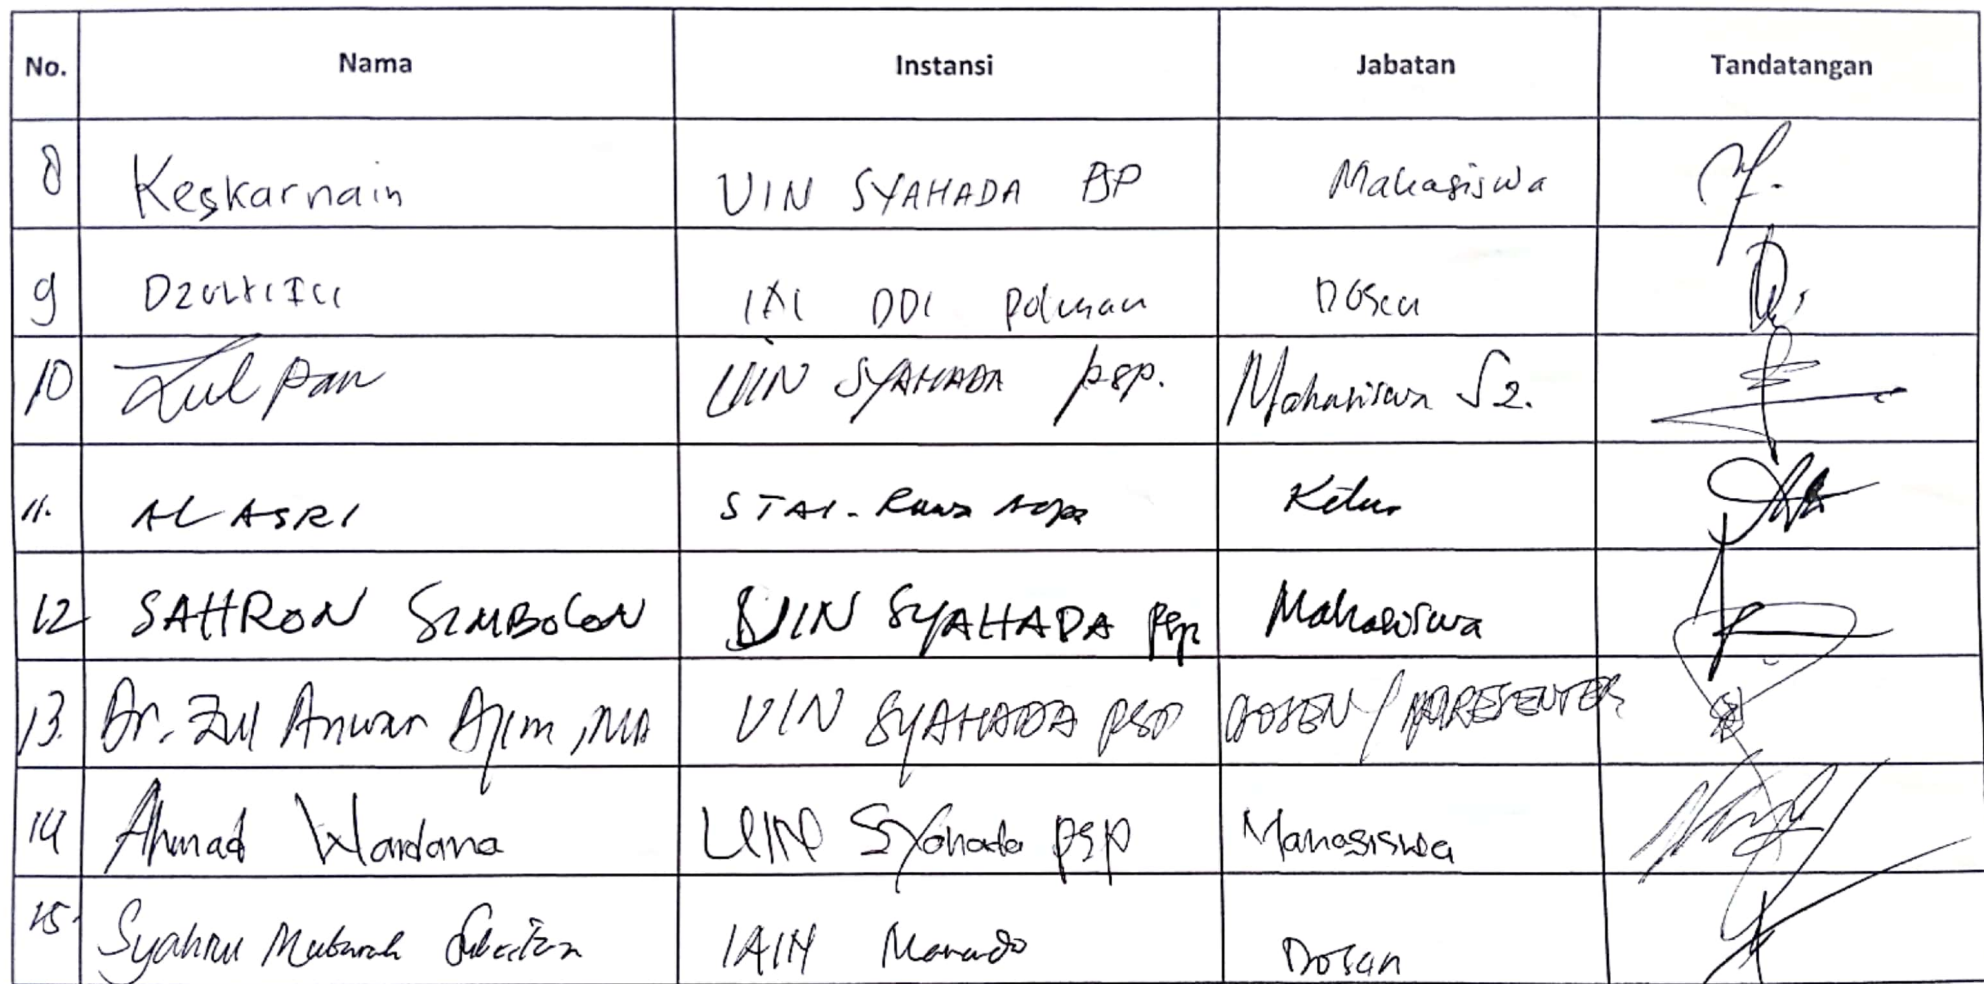 No. Nama Instansi Jabatan Tandatangan
8 Keskarnain UIN SYAHADA PSP Mahasiswa
9 DZULKIFLI IAI DDI Polman Dosen
10 Zulpan UIN SYAHADA PSP. Mahasiswa S2.
11. AL ASRI STAI - Rawa Aopa Ketua
12 SAHRON SIMBOLON UIN SYAHADA PSP Mahasiswa
13. Dr. Zul Anwar Ajim, MA UIN SYAHADA PSP DOSEN / PRESENTER
14 Ahmad Wardana UIN Syahada PSP Mahasiswa
15. Syahru Mubarak IAIN Manado Dosan